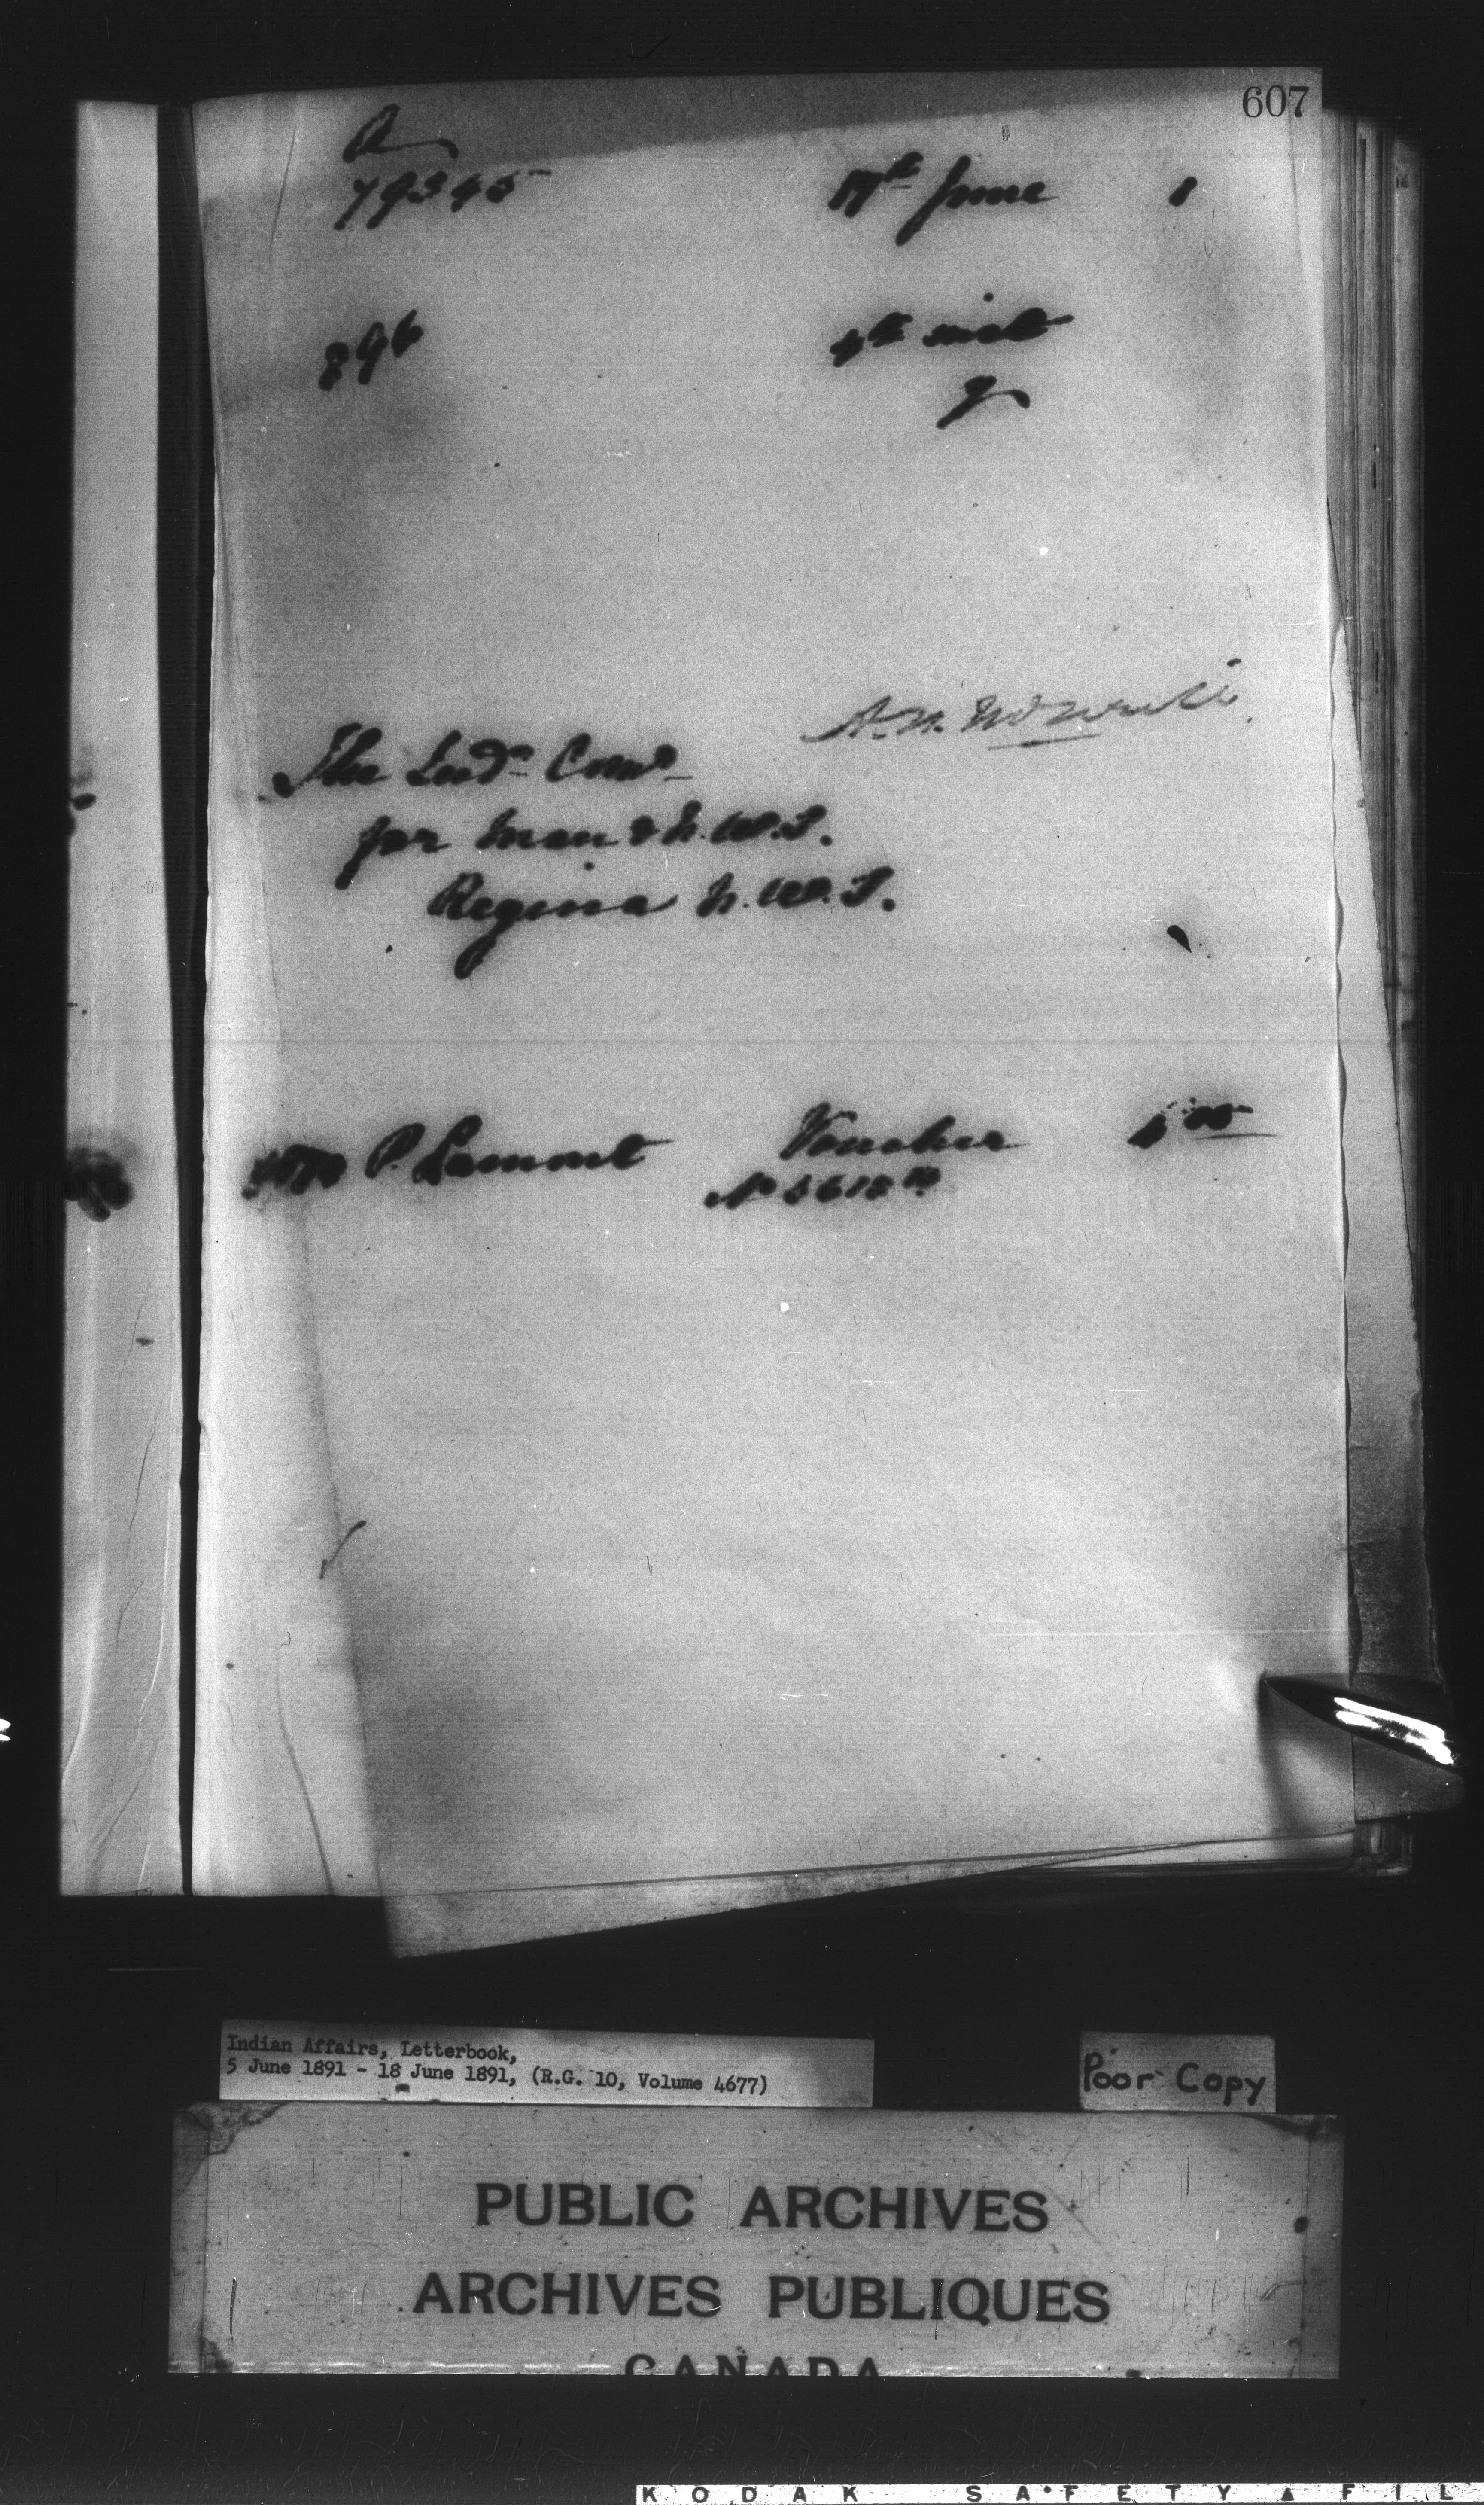 607
A
79345
17th June 1
896
4th inst
The Indn Comr
for Man & N.W.T.
Regina N.W.T.
P. Lamont Voucher
No
Indian Affairs, Letterbook,
5 June 1891 - 18 June 1891, (R.G. 10, Volume 4677)
Poor Copy
PUBLIC ARCHIVES
ARCHIVES PUBLIQUES
CANADA
KODAK SAFETY FIL